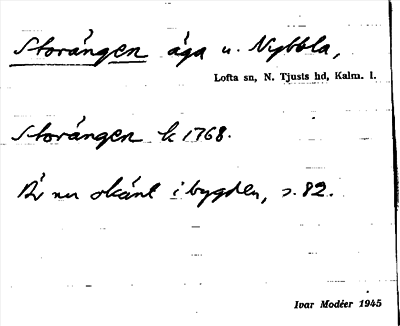 Storången äga u. Nybbla,
Lofta sn, N. Tjusts hd, Kalm. l.
Storången k 1768.
Är nu okänt i bygden, s. 82.
Ivar Modéer 1945